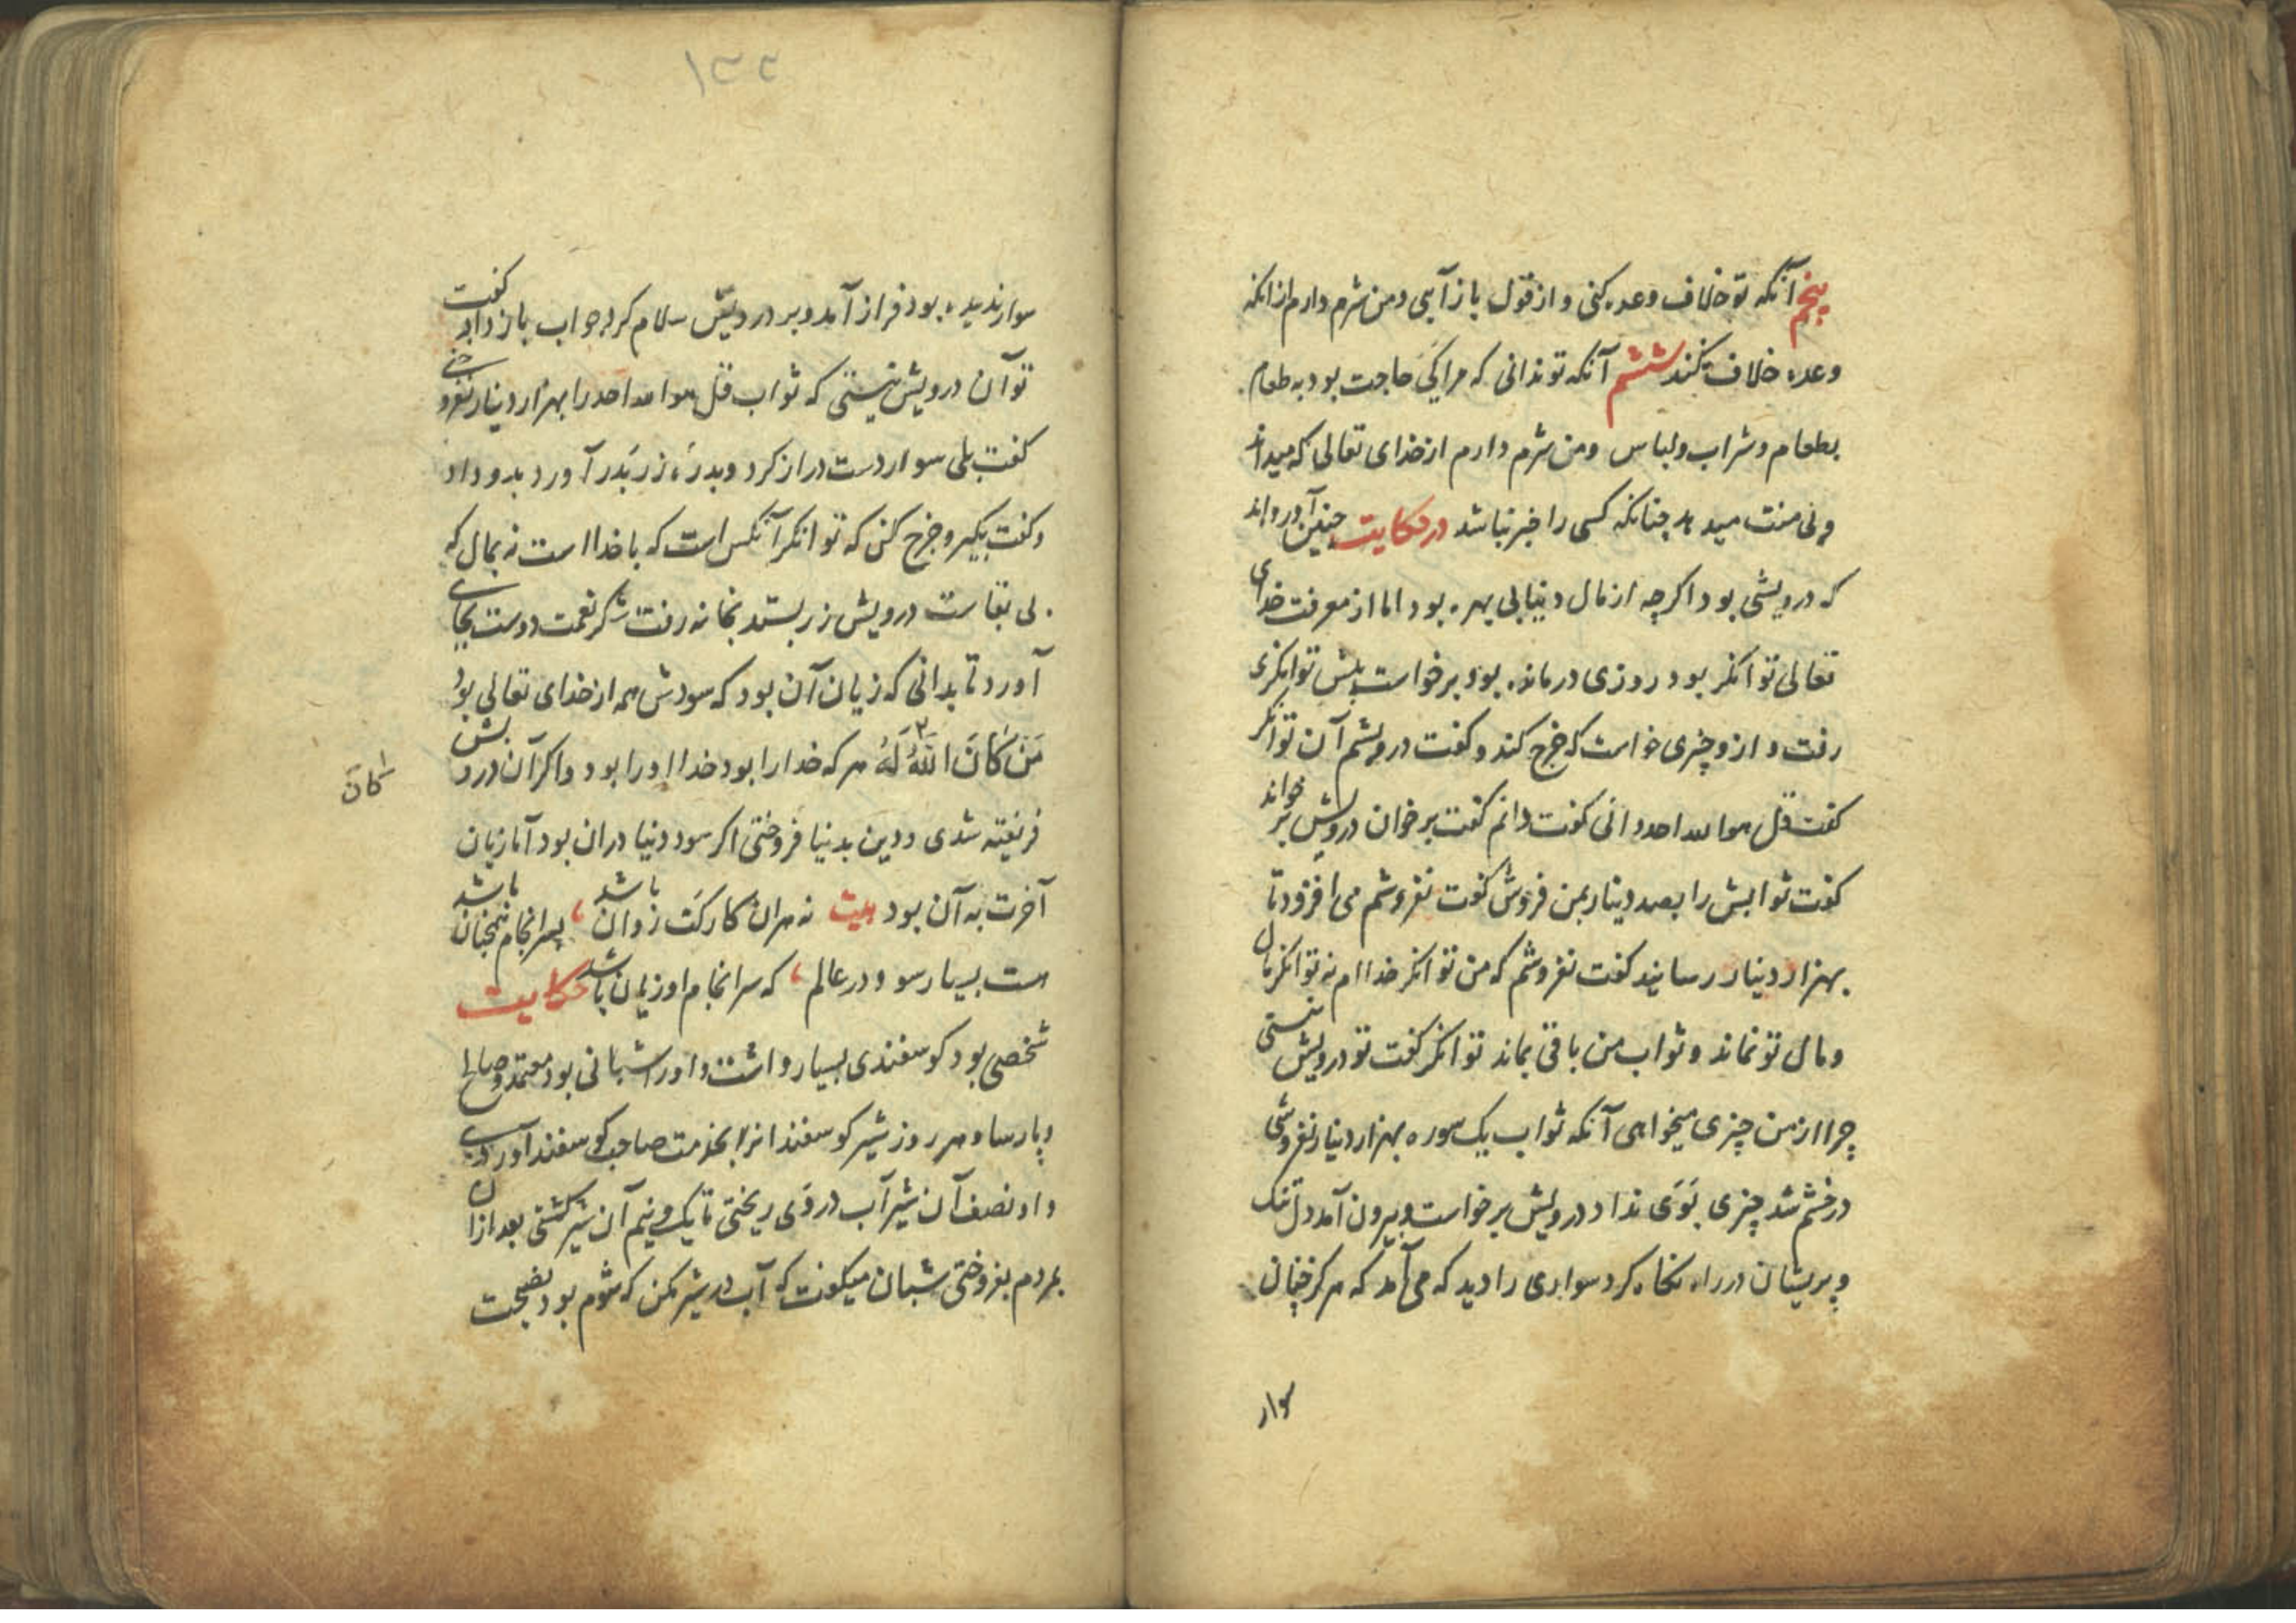 پنجم آنکه تو خلاف وعده کنی و از قول باز آیی و من شرم دارم از انکه
وعده خلاف کنند ششم آنکه تو ندانی که مرا کی حاجت بود به طعام
بطعام و شراب و لباس و من شرم دارم از خدای تعالی که میداند
و بی منت میدهد چنانکه کسی را خبر نباشد در حکایت چنین آورده اند
که درویشی بود اکرچه از مال دنیا بی بهره بود اما از معرفت خدای
تعالی توانکر بود روزی درمانده بود برخواست پیش توانکری
رفت و ازو چیزی خواست که خرج کند و کفت درویشم آن توانکر
کفت قل هو الله احد دانی کفت دانم کفت برخوان درویش برخواند
کفت ثوابش را بصد دینار بمن فروش کفت نفروشم می افزود تا
بهزار دینار رسانید کفت نفروشم که من توانکر خداام نه توانکر مال
و مال تو نماند و ثواب من باقی بماند توانکر کفت تو درویش نیستی
چرا از من چیزی میخواهی آنکه ثواب یک سوره بهزار دینار نفروشی
درخشم شد چیزی بوی نداد درویش برخواست و بیرون آمد دل تنک
و پریشان در راه نکاه کرد سواری را دید که می آمد که هرکز چنان
سوار
۱۲۲
سوار ندیده بود فراز آمد و بر درویش سلام کرد جواب باز داد کفت
تو آن درویش نیستی که ثواب قل هو الله احد را بهزار دینار نفروختی
کفت بلی سوار دست دراز کرد و بدرهٔ زر بدر آورد بدو داد
و کفت بکیر و خرج کن که توانکر آنکس است که با خدا است نه بمال که
بی بقاست درویش زر بستد بخانه رفت شکر نعمت دوست بجای
آورد تا بدانی که زیان آن بود که سودش همه از خدای تعالی بود
مَن کَانَ اللهُ لَهُ هرکه خدا را بود خدا او را بود و اکر آن درویش
کان
فریفته شدی و دین بدنیا فروختی اکر سود دنیا دران بود اما زیان
آخرت به آن بود بیت نه هران کارکت زوان باشد ، بسرانجام همچنان باشد
هست بسیار سود در عالم ، که سرانجام او زیان باشد حکایت
شخصی بود کوسفندی بسیار داشت و او را شبانی بود معتمد و صالح
و پارسا و هر روز شیر کوسفندانرا بخذمت صاحب کوسفند آوردی
و او نصف آن شیر آب در وی ریختی تا یک و نیم آن شیر کشتی بعد ازان
بمردم بفروختی شبان میکفت که آب در شیر مکن که شوم بود نصیحت